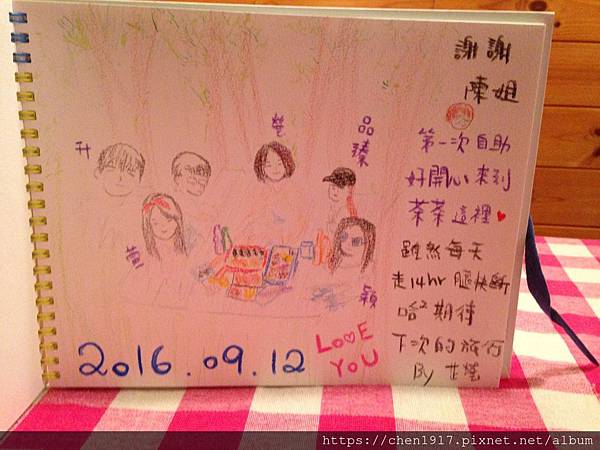 謝謝
陳姐
第一次自助
好開心來到
茶茶這裡
雖然每天
走14hr 腿快斷
哈² 期待
下次的旅行
By
升
瑩
品臻
萱
穎
2016.09.12
LOVE
YOU
https://chen1917.pixnet.net/album